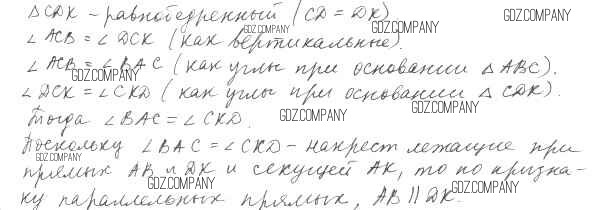 △CDK – равнобедренный (CD = DK)
∠ACB = ∠DCK (как вертикальные).
∠ACB = ∠BAC (как углы при основании △ABC).
∠DCK = ∠CKD (как углы при основании △CDK).
Тогда ∠BAC = ∠CKD.
Поскольку ∠BAC = ∠CKD – накрест лежащие при
прямых AB и DK и секущей AK, то по призна-
ку параллельных прямых, AB || DK.
GDZ.COMPANY
GDZ.COMPANY
GDZ.COMPANY
GDZ.COMPANY
GDZ.COMPANY
GDZ.COMPANY
GDZ.COMPANY
GDZ.COMPANY
GDZ.COMPANY